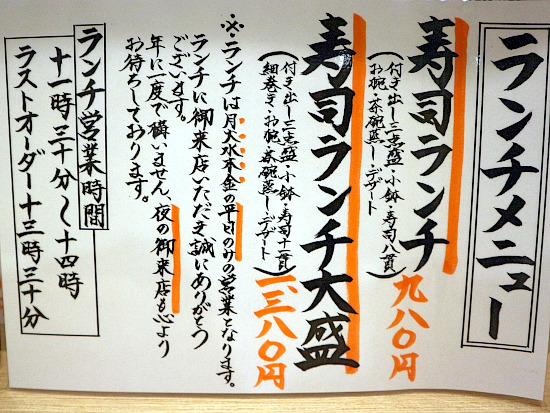 ランチメニュー
寿司ランチ 九八〇円
(付き出し三点盛・小鉢・寿司八貫
お椀・茶碗蒸し・デザート)
寿司ランチ大盛 一、三八〇円
(付き出し三点盛・小鉢・寿司十一貫
細巻き・お椀・茶碗蒸し・デザート)
※ランチは月火水木金の平日のみの営業となります。
ランチに御来店いただき誠にありがとう
ございます。
年に一度で構いません、夜の御来店も心より
お待ちしております。
ランチ営業時間
十一時三十分〜十四時
ラストオーダー十三時三十分